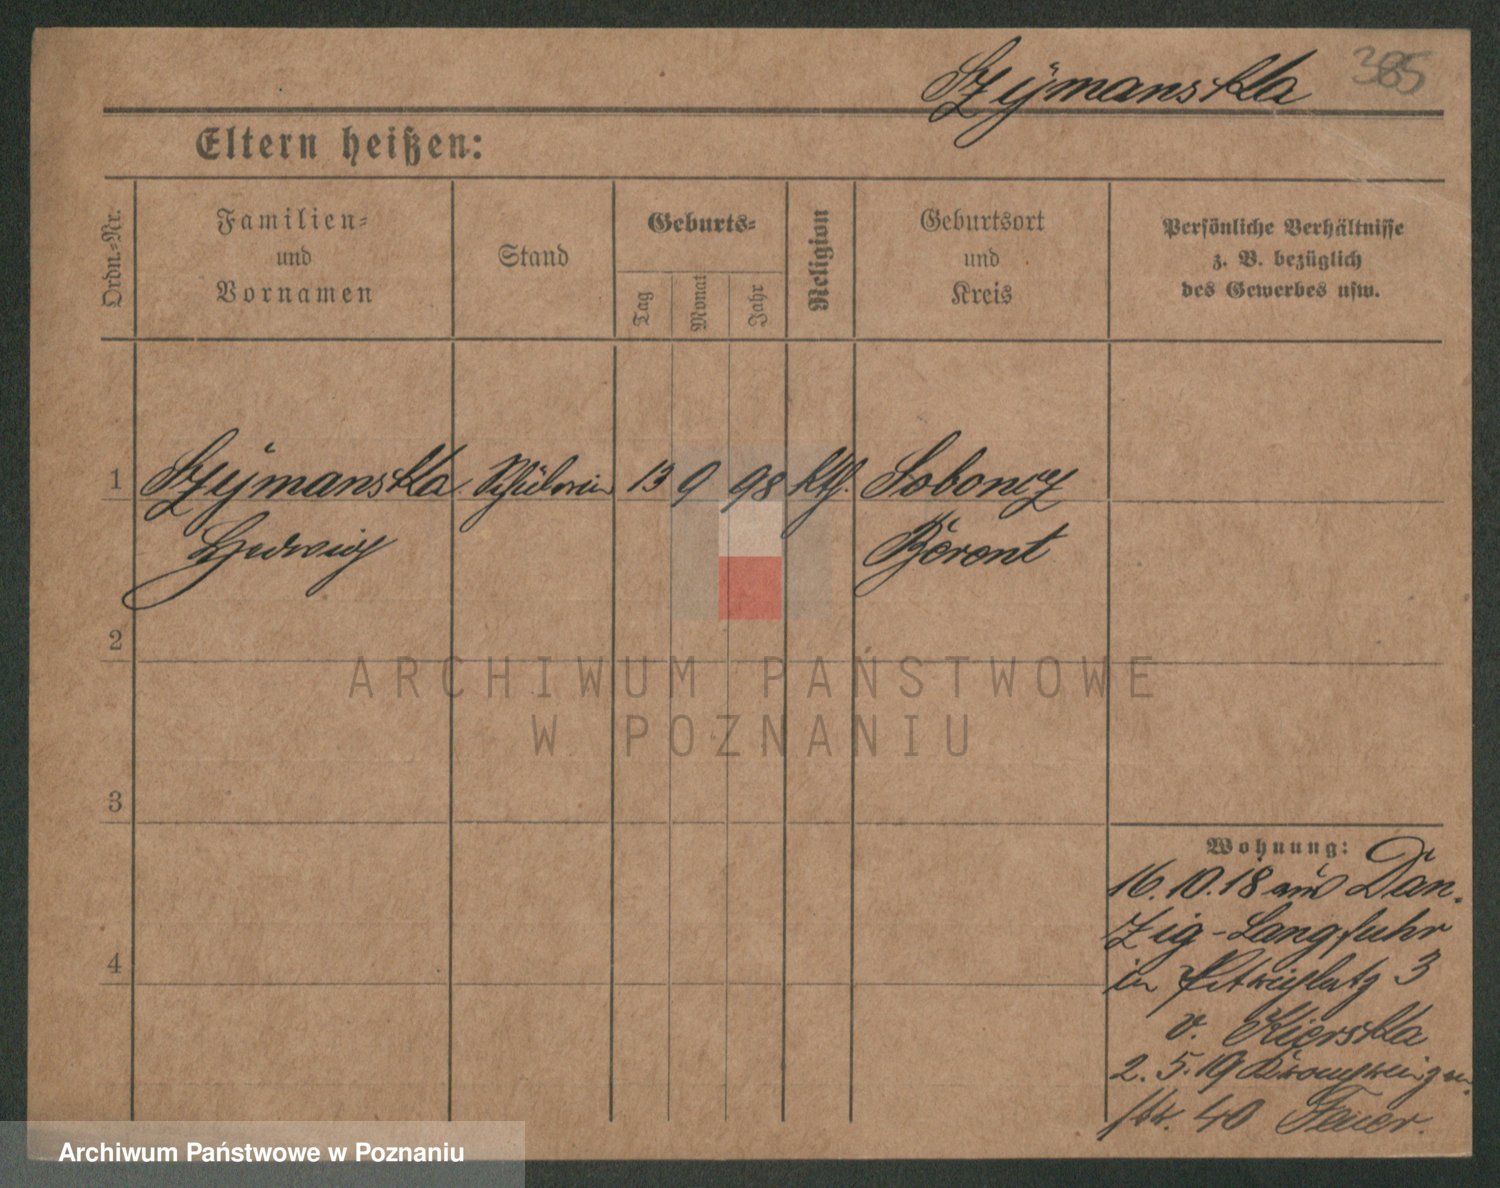 Szÿmanska 385
Eltern heißen:
Ordn.-Nr.
Familien-
und
Vornamen
Stand
Geburts-
Tag
Monat
Jahr
Religion
Geburtsort
und
Kreis
Persönliche Verhältnisse
z. B. bezüglich
des Gewerbes usw.
1 Szÿmanska Schülerin 13 9 98 kth. Soboncz
Hedwig Berent
2
3
4
Wohnung:
16.10.18 aus Dan-
zig-Langfuhr
in Petriplatz 3
v. Kierska
2.5.19
str. 40 Feuer.
ARCHIWUM PAŃSTWOWE
W POZNANIU
Archiwum Państwowe w Poznaniu